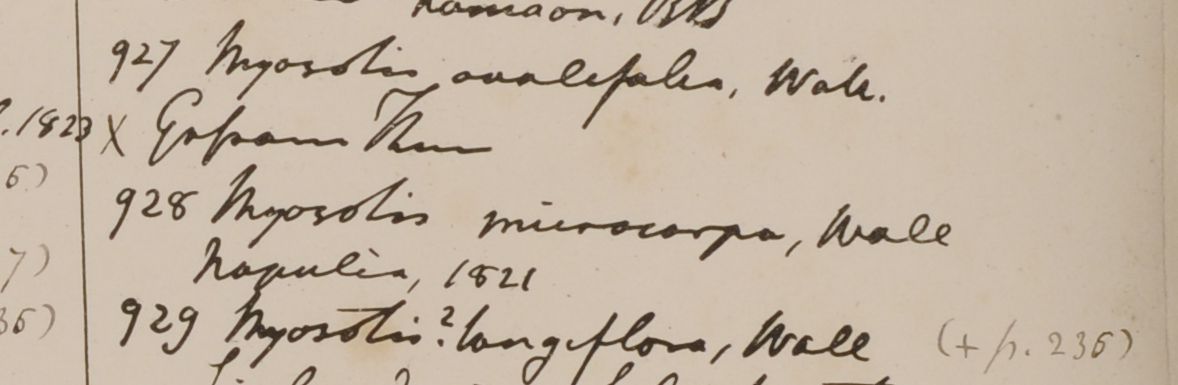 Kamaon, RB
927 Myosotis ovalifolia, Wall.
1823 X Gosam Than
6)
928 Myosotis microcarpa, Wall
7) Napulia, 1821
36) 929 Myosotis? longiflora, Wall (+ p. 236)